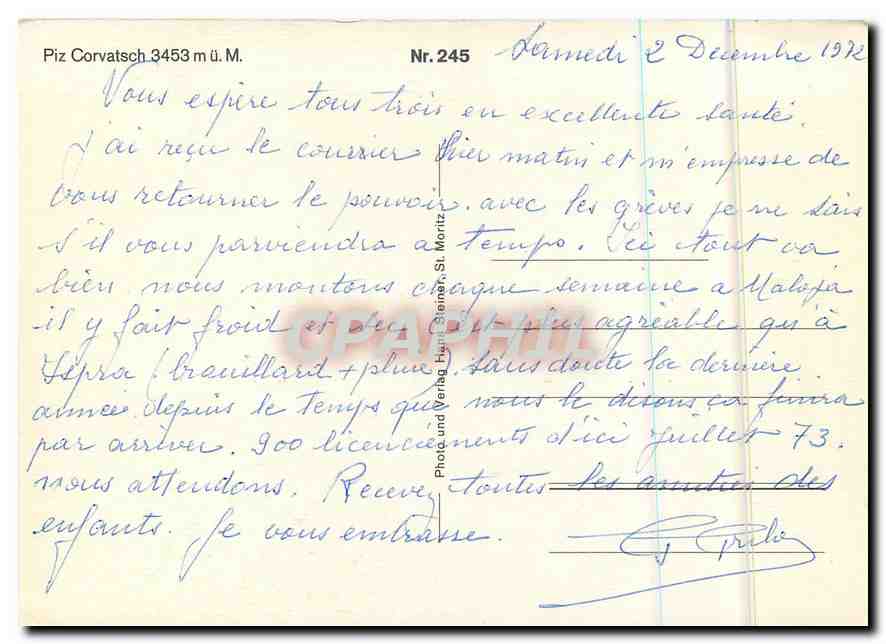 Piz Corvatsch 3453 m ü. M.
Nr. 245
Samedi 2 Decembre 1972
Vous espère tous trois en excellente santé.
J'ai reçu le courrier hier matin et m'empresse de
vous retourner le pouvoir. avec les grèves je ne sais
s'il vous parviendra a temps. Ici tout va
bien nous montons chaque semaine a Maloja
il y fait froid et sec c'est plus agréable qu'à
Ispra (brouillard + pluie). Sans doute la dernière
année depuis le temps que nous le disons ça finira
par arriver. 900 licenciements d'ici Juillet 73.
nous attendons. Recevez toutes les amitiés des
enfants. Je vous embrasse.
Photo und Verlag Hans Steiner, St. Moritz
CPAPHIL